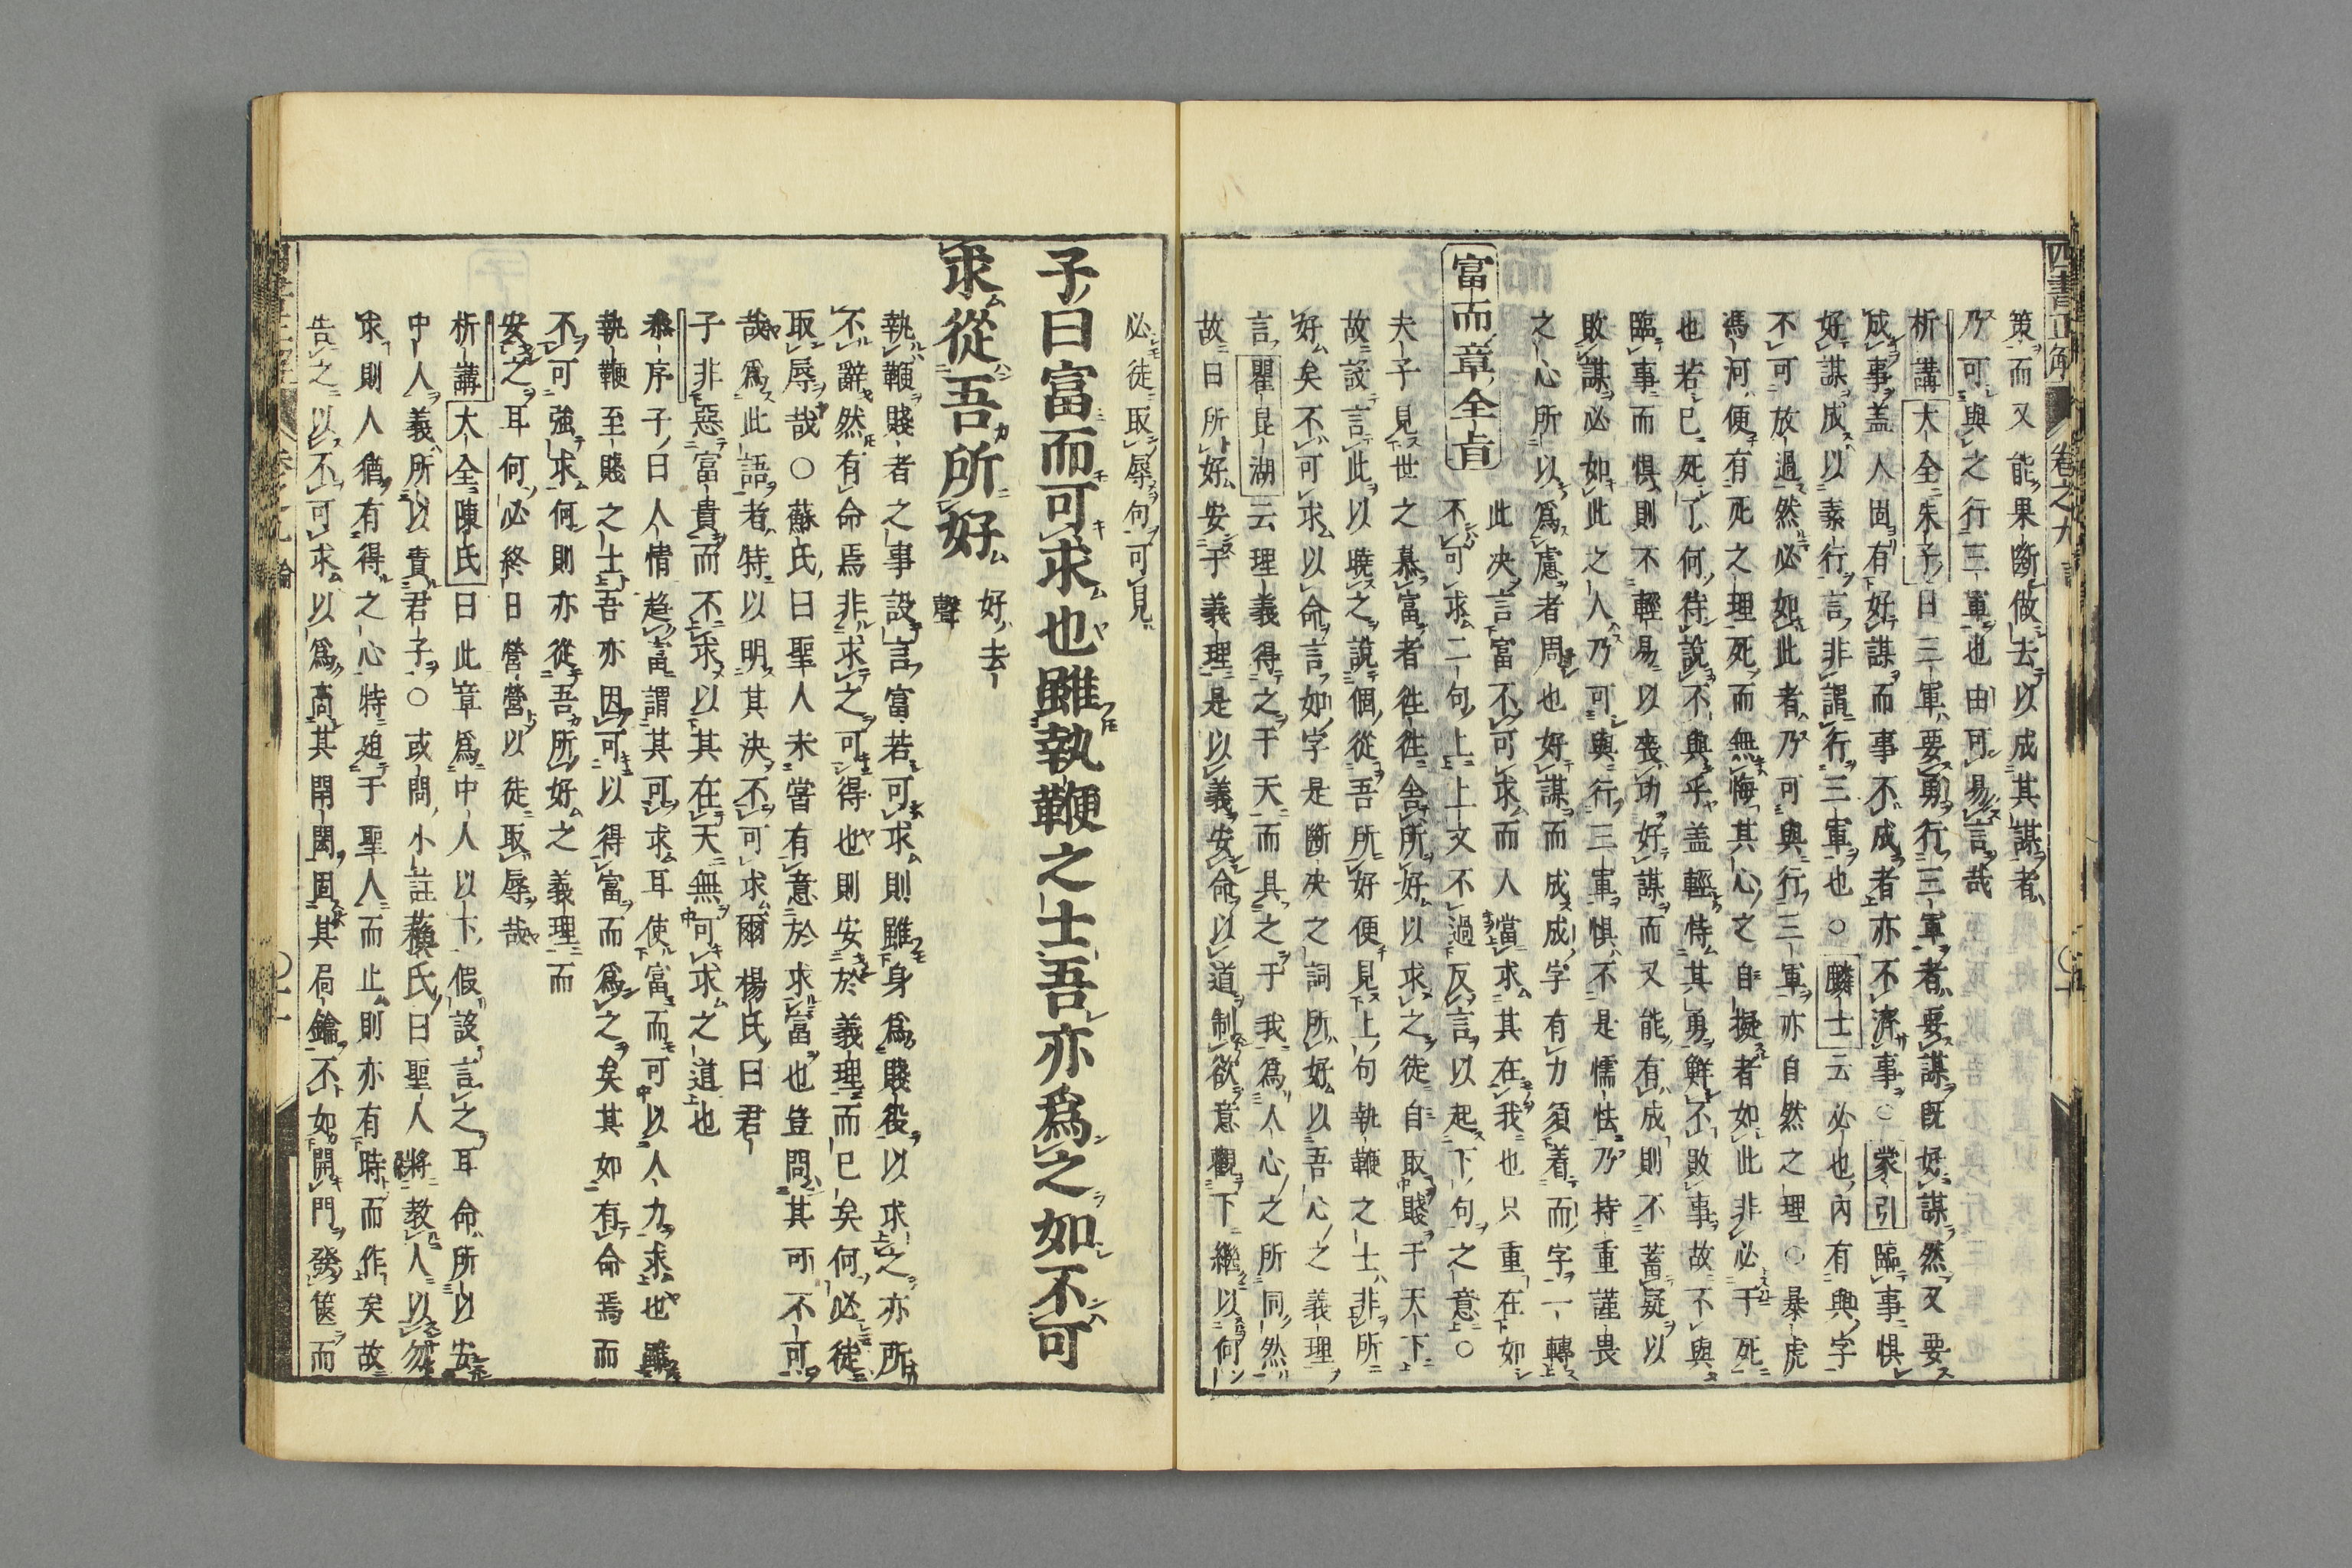 四書正解 卷之九
策而又能果斷做去以成其謀者
乃可與之行三軍也由可易言哉
析講大全朱子曰三軍要勇行三軍者要謀既好謀然又要
成事盖人固有好謀而事不成者亦不濟事○蒙引臨事惧
好謀成以素行言非謂行三軍也○麟士云必也內有與字
不可放過然必如此者乃可與行三軍亦自然之理○暴虎
馮河便有死之理死而無悔其心之自擬者如此非必于死
也若巳死了何待說不與乎盖輕恃其勇鮮不敗事故不與
臨事而惧則不輕易以喪功好謀而又能有成則不蓄疑以
敗謀必如此之人乃可與行三軍惧不是懦怯乃持重謹畏
之心所以為慮者周也好謀而成成字有力須着而字一轉
此決言富不可求而人當求其在我也只重在如
富而章全旨
不可求二句上上文不過反言以起下句之意○
夫子見世之慕富者徃徃舍所好以求之徒自取賤于天下
故設言此以曉之說個從吾所好便見上句執鞭之士非所
好矣不可求以命言如字是斷決之詞所好以吾心之義理
言瞿昆湖云理義得之于天而具之于我為人心之所同然
故曰所好安于義理是以義安命以道制欲意觀下繼以何
必徒取辱句可見
子曰富而可求也雖執鞭之士吾亦為之如不可
求從吾所好
好去
聲
執鞭賤者之事設言富若可求則雖身為賤役以求之亦所
不辭然有命焉非求之可得也則安於義理而巳矣何必徒
取辱哉○蘇氏曰聖人未嘗有意於求富也豈問其可不可
哉為此語者特以明其決不可求爾楊氏曰君
子非惡富貴而不求以其在天無可求之道也
參序子曰人情趨富謂其可求耳使富而可以人力求也雖
執鞭至賤之士吾亦因可以得富而為之矣其如有命焉而
不可強求何則亦從吾所好之義理而
安之耳何必終日營營以徒取辱哉
析講大全陳氏曰此章為中人以下假設言之耳命所以安
中人義所以責君子○或問小註蘓氏曰聖人將教人以勿
求則人猶有得之心特廹于聖人而止則亦有時而作矣故
告之以不可求以為高其閈閎固其扃鑰不如開門發篋而